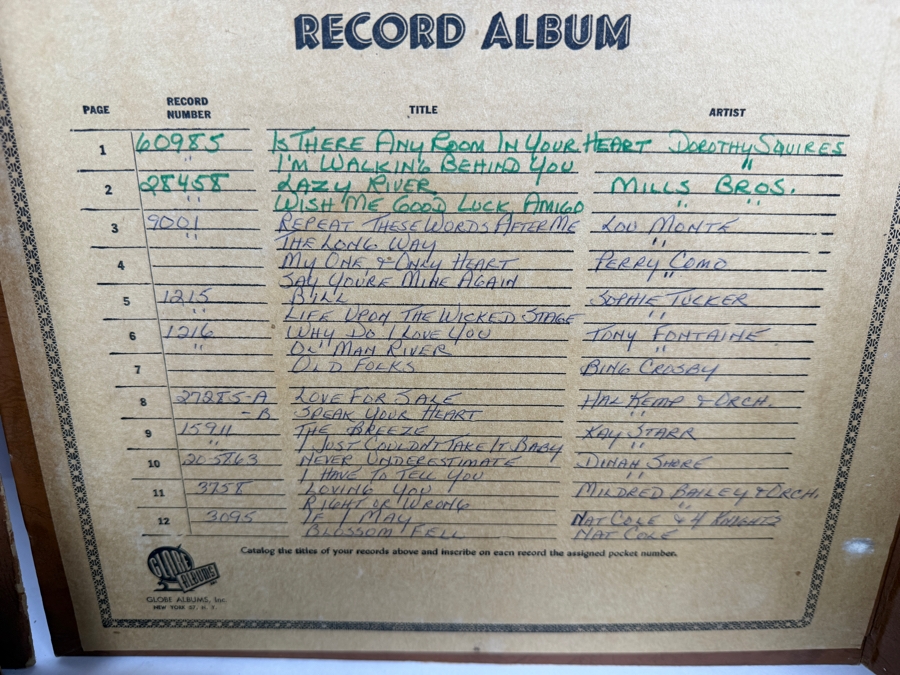 RECORD ALBUM
PAGE RECORD NUMBER TITLE ARTIST
1 60985 IS THERE ANY ROOM IN YOUR HEART DOROTHY SQUIRES
" I'M WALKING BEHIND YOU "
2 28458 LAZY RIVER MILLS BROS.
" WISH ME GOOD LUCK AMIGO " "
3 9001 REPEAT THESE WORDS AFTER ME LOU MONTE
" THE LONG WAY "
4 MY ONE & ONLY HEART PERRY COMO
SAY YOU'RE MINE AGAIN "
5 1215 BILL SOPHIE TUCKER
" LIFE UPON THE WICKED STAGE "
6 1216 WHY DO I LOVE YOU TONY FONTAINE
" OL' MAN RIVER "
7 OLD FOLKS BING CROSBY
8 27285-A LOVE FOR SALE HAL KEMP & ORCH.
-B SPEAK YOUR HEART " "
9 15911 THE BREEZE KAY STARR
" I JUST COULDN'T TAKE IT BABY "
10 20-5863 NEVER UNDERESTIMATE DINAH SHORE
I HAVE TO TELL YOU "
11 3758 LOVING YOU MILDRED BAILEY & ORCH.
RIGHT OR WRONG "
12 3095 IF I MAY NAT COLE & 4 KNIGHTS
BLOSSOM FELL NAT COLE
Catalog the titles of your records above and inscribe on each record the assigned pocket number.
GLOBE ALBUMS
GLOBE ALBUMS, Inc.
NEW YORK 57, N. Y.